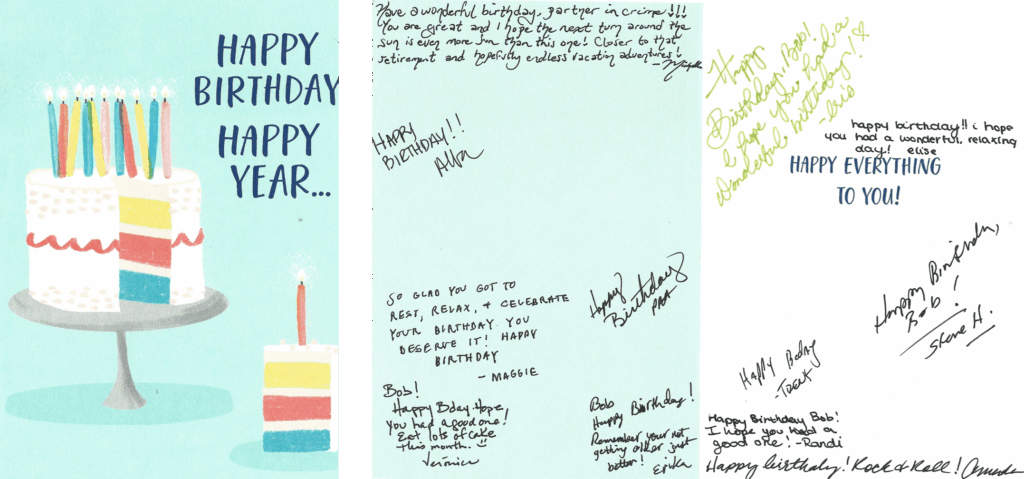 HAPPY
BIRTHDAY
HAPPY
YEAR...
Have a wonderful birthday, partner in crime!!!
You are great and I hope the next turn around the
sun is even more fun than this one! Closer to that
retirement and hopefully endless vacation adventures!
- Michelle
HAPPY
BIRTHDAY!!
SO GLAD YOU GOT TO
REST, RELAX, & CELEBRATE
YOUR BIRTHDAY. YOU
DESERVE IT! HAPPY
BIRTHDAY
- MAGGIE
Happy
Birthday
PAA
Bob!
Happy Bday Hope
You had a good one!
Eat lots of cake
This month. ☺
Veronica
Bob
Happy Birthday!
Remember your not
getting older just
better!
Erika
Happy
Birthday, Bob!
I hope you had a
wonderful birthday! ♡
happy birthday!! i hope
you had a wonderful, relaxing
day! elise
HAPPY EVERYTHING
TO YOU!
Happy Birthday,
Bob!
Steve H.
Happy Bday
Happy Birthday Bob!
I hope you had a
good one! -Randi
Happy birthday! Rock & Roll! Amanda